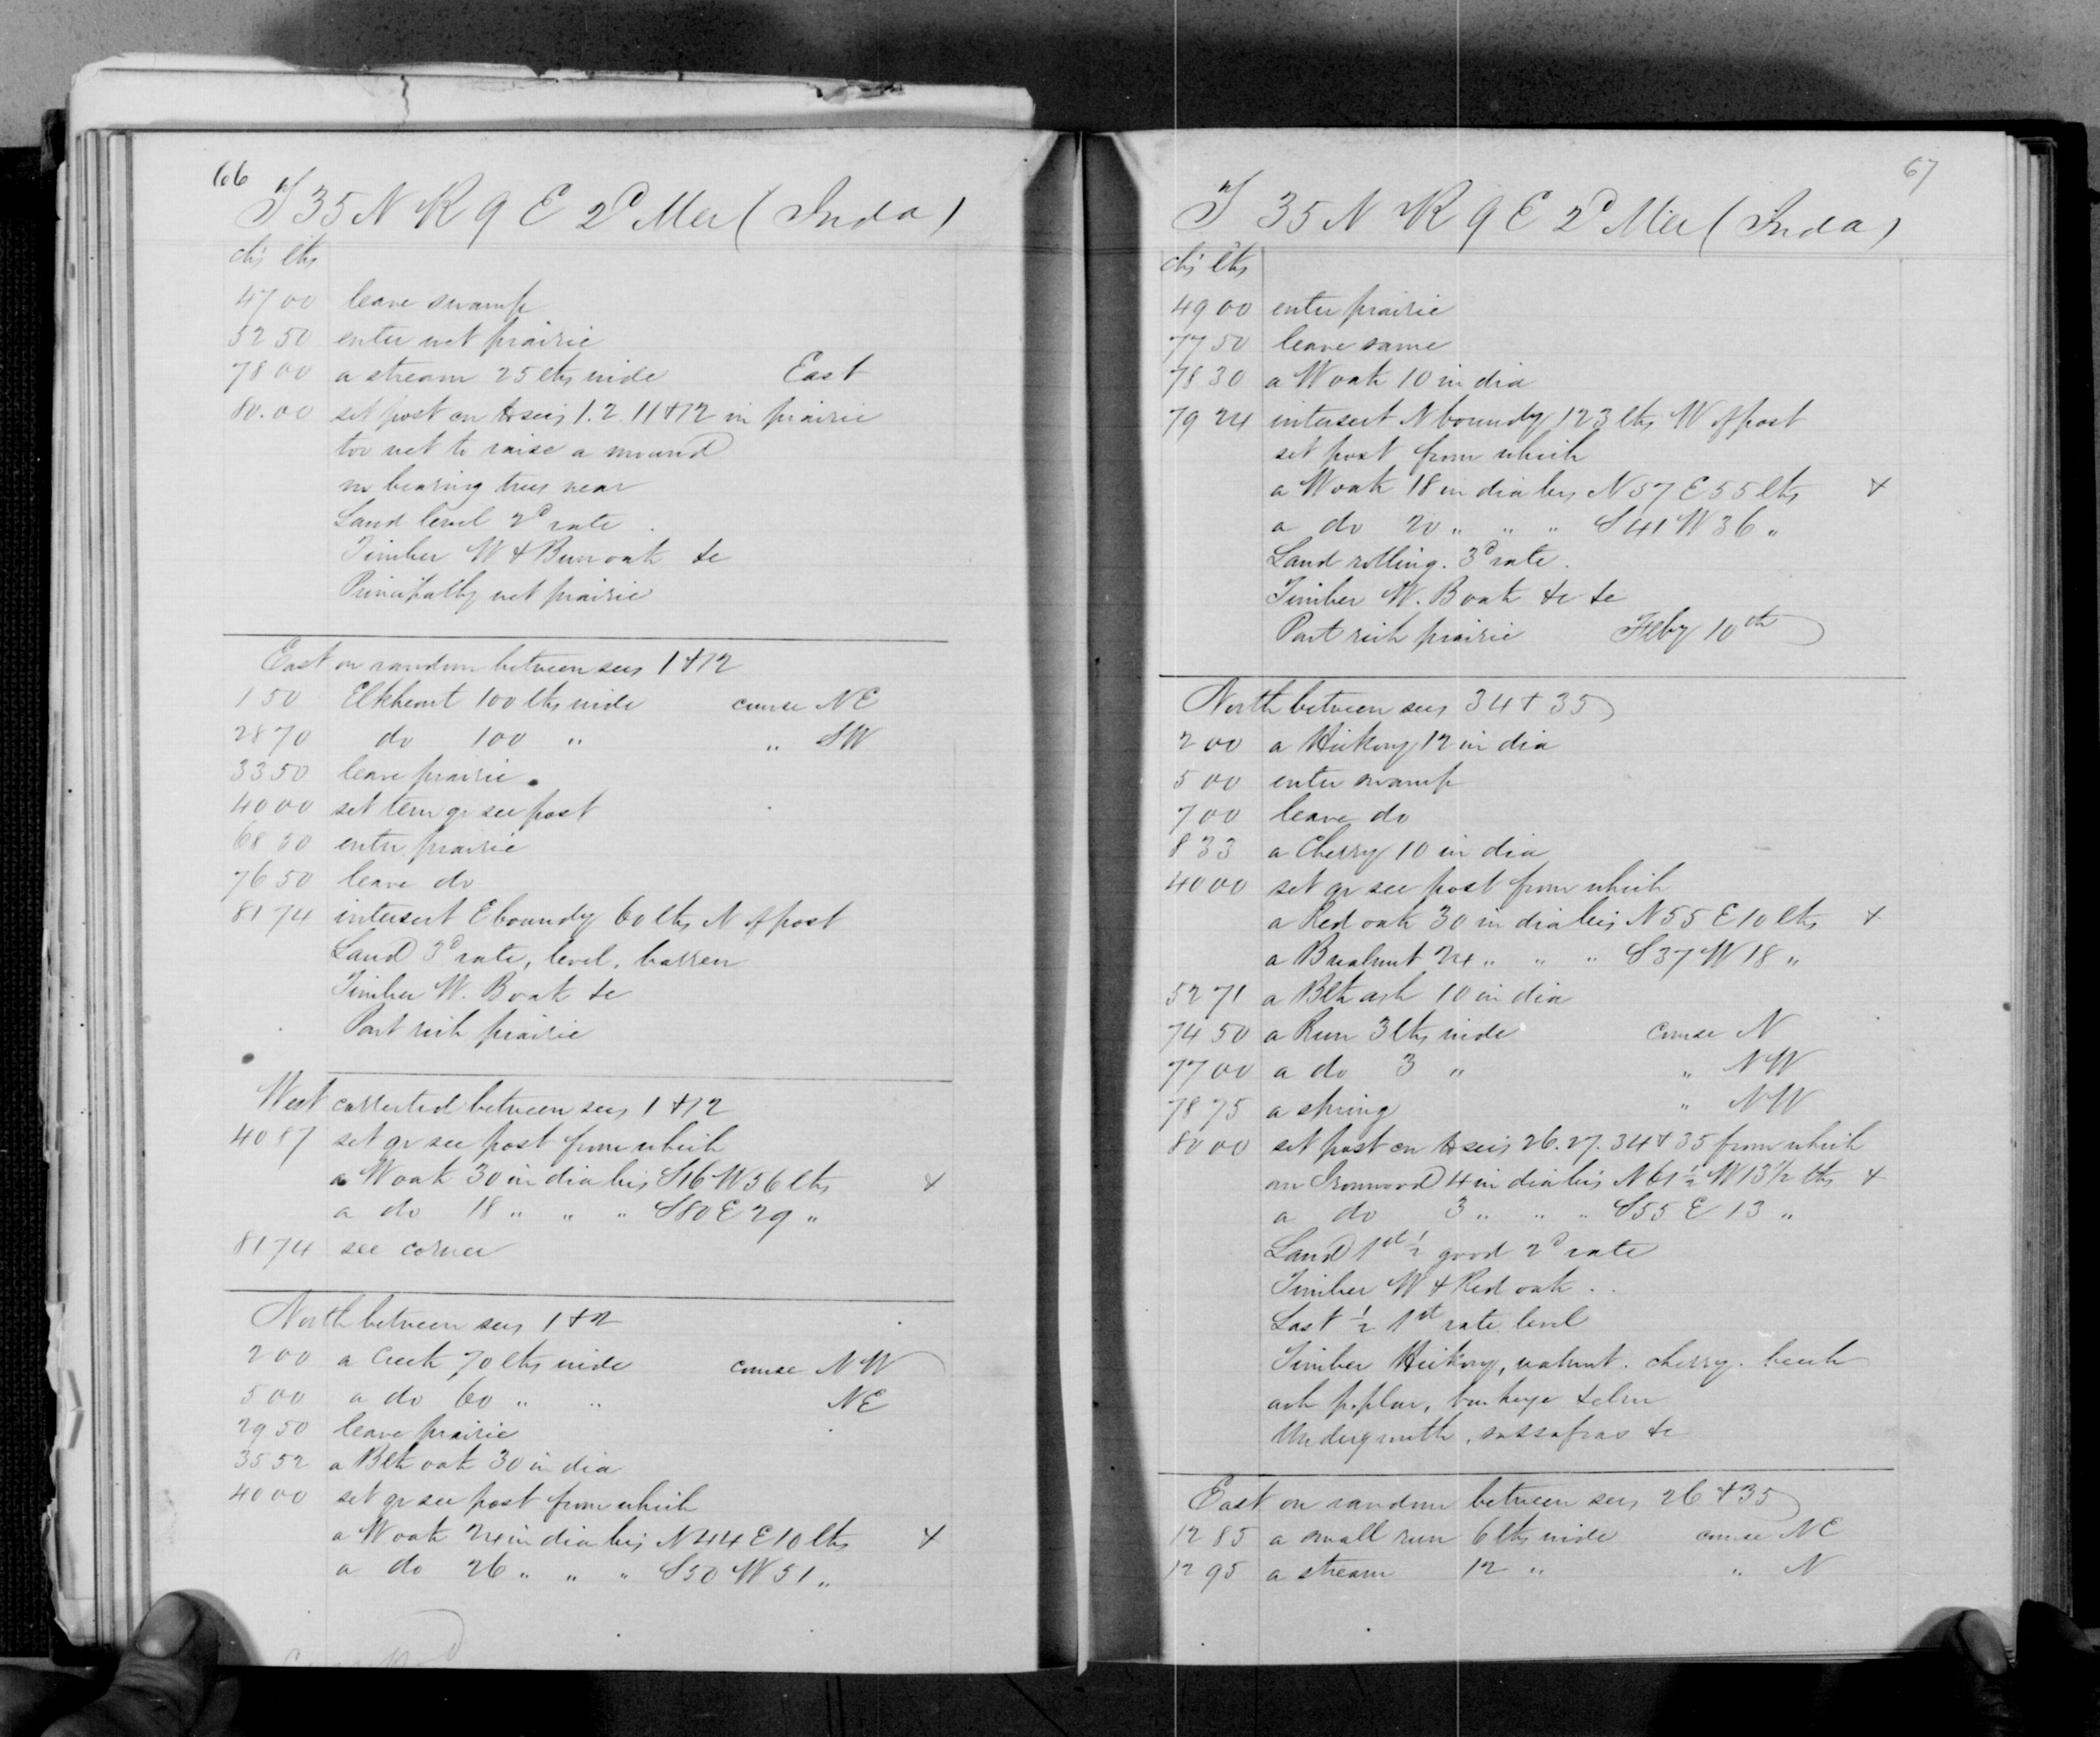 66
T 35 N R 9 E 2d Mer (Inda)
chs lks
47 00 leave swamp
52 50 enter wet prairie
78 00 a stream 25 lks wide East
80.00 set post cor to secs 1. 2. 11 & 12 in prairie
too wet to raise a mound
no bearing trees near
Land level 2d rate.
Timber W & Bur oak &c
Principally wet prairie
East on random between secs 1 & 12
1 50 Elkheart 100 lks wide course NE
28 70 do 100 " " SW
33 50 leave prairie.
40 00 set tem qr sec post
68 50 enter prairie
76 50 leave do
81 74 intersect E boundy 60 lks N of post
Land 3d rate, level, barren
Timber W. B oak &c
Part rich prairie
West corrected between secs 1 & 12
40 87 set qr sec post from which
a W oak 30 in dia brs S 16 W 56 lks +
a do 18 " " " S 80 E 29 "
81 74 sec corner
North between secs 1 & 2
2 00 a Creek 70 lks wide course NW
5 00 a do 60 " " NE
29 50 leave prairie
35 52 a Blk oak 30 in dia
40 00 set qr sec post from which
a W oak 24 in dia brs N 44 E 10 lks +
a do 26 " " " S 50 W 51 "
67
T 35 N R 9 E 2d Mer (Inda)
chs lks
49 00 enter prairie
77 50 leave same
78 30 a W oak 10 in dia
79 24 intersect N boundy 123 lks W of post
set post from which
a W oak 18 in dia brs N 57 E 55 lks +
a do 20 " " " S 41 W 36 "
Land rolling. 3d rate.
Timber W. B oak &c &c
Part rich prairie Feby 10th
North between secs 34 & 35
2 00 a Hickory 12 in dia
5 00 enter swamp
7 00 leave do
8 33 a Cherry 10 in dia
40 00 set qr sec post from which
a Red oak 30 in dia brs N 55 E 10 lks +
a B walnut 24 " " " S 37 W 18 "
52 71 a Blk ash 10 in dia
74 50 a Run 3 lks wide course N
77 00 a do 3 " " NW
78 75 a spring " NW
80 00 set post cor to secs 26. 27. 34 & 35 from which
an Ironwood 4 in dia brs N 61 1/2 W 13 1/2 lks +
a do 3 " " " S 55 E 13 "
Land 1st 1/2 good 2d rate
Timber W & Red oak..
Last 1/2 1st rate level
Timber Hickory, walnut. cherry. beech
ash poplar, buckeye & elm
Undergrowth, sassafras &c
East on random between secs 26 & 35
12 85 a small run 6 lks wide course NE
12 95 a stream 12 " " N